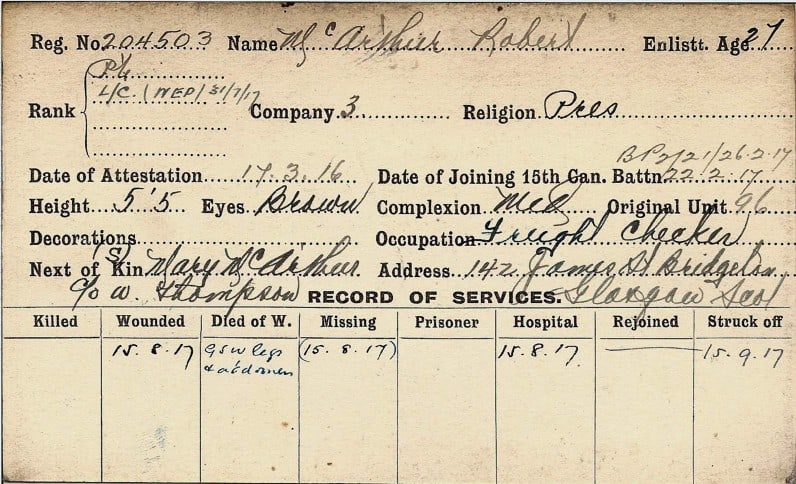 Reg. No. 204503 Name McArthur Robert Enlistt. Age 27
Pte
L/C. (WEP) 31/7/17
Rank Company 3 Religion Pres
BP2/21/26-2-17
Date of Attestation 17.3.16 Date of Joining 15th Can. Battn 22.2.17
Height 5'5 Eyes Brown Complexion Med Original Unit 96
Decorations Occupation Freight Checker
Next of Kin (S) Mary McArthur Address 142 James St Bridgeton
c/o W. Thompson RECORD OF SERVICES. Glasgow Scot
Killed Wounded Died of W. Missing Prisoner Hospital Rejoined Struck off
15.8.17 GSW legs (15.8.17) 15.8.17 15.9.17
& abdomen